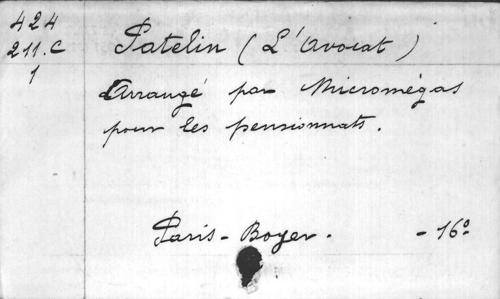 424
211.C
1
Patelin (L'Avocat)
Arrangé par Micromégas
pour les pensionnats.
Paris - Boyer. - 16º